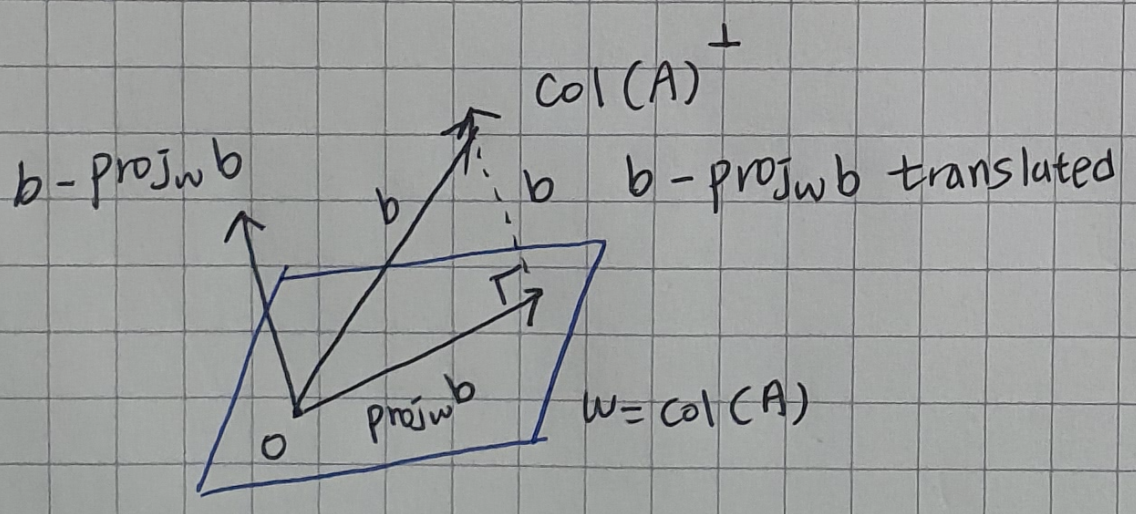 col(A)⊥
b-projwb
b
b
b-projwb translated
projwb
W=col(A)
O